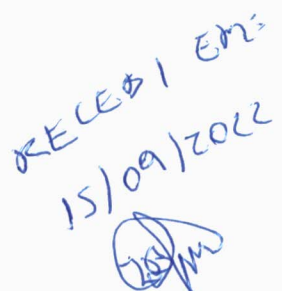 RECEBI EM:
15/09/2022